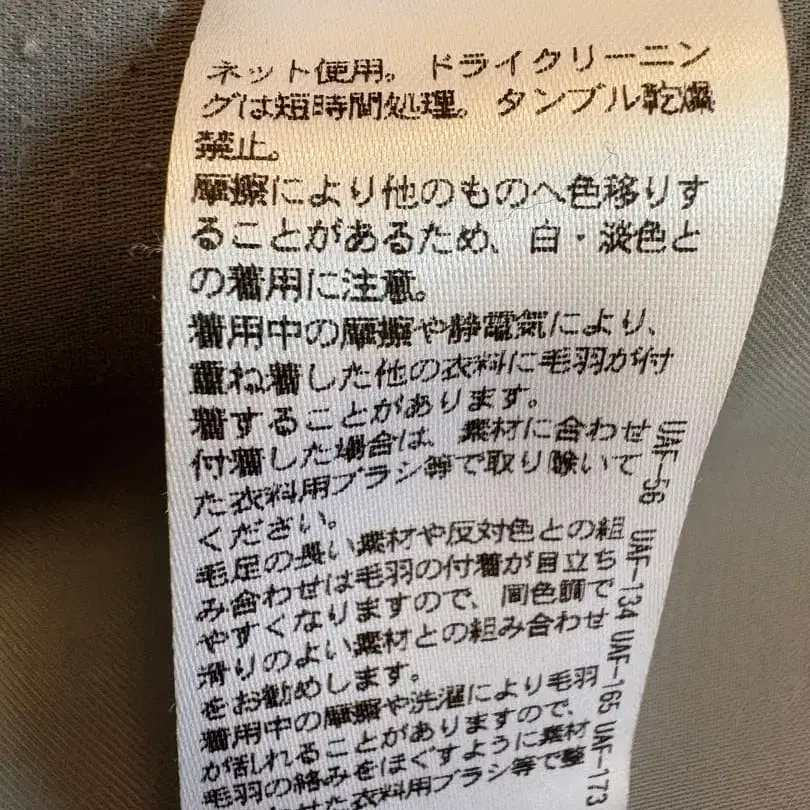 ネット使用。ドライクリーニン
グは短時間処理。タンブル乾燥
禁止。
摩擦により他のものへ色移りす
ることがあるため、白・淡色と
の着用に注意。
着用中の摩擦や静電気により、
重ね着した他の衣料に毛羽が付
着することがあります。
付着した場合は、素材に合わせ
た衣料用ブラシ等で取り除いて
ください。
毛足の長い素材や反対色との組
み合わせは毛羽の付着が目立ち
やすくなりますので、同色調で
滑りのよい素材との組み合わせ
をお勧めします。
着用中の摩擦や洗濯により毛羽
が乱れることがありますので、
毛羽の絡みをほぐすように素材
わせた衣料用ブラシ等で整
UAF-56 UAF-134 UAF-165 UAF-173